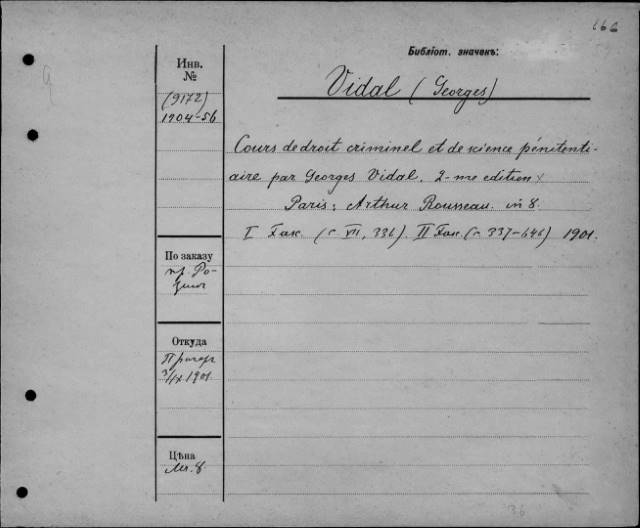 Библіот. значенъ:
Vidal (Georges)
Инв.
№
(9172)
1904-56
Cours de droit criminel et de science pénitenti-
aire par Georges Vidal. 2-me edition
Paris; Arthur Rousseau. in 8.
I Fasc. (c VII, 336). II Fasc. (c 337-646) 1901.
По заказу
пр. Ро-
Откуда
3/IX 1901.
Цѣна
8.
36